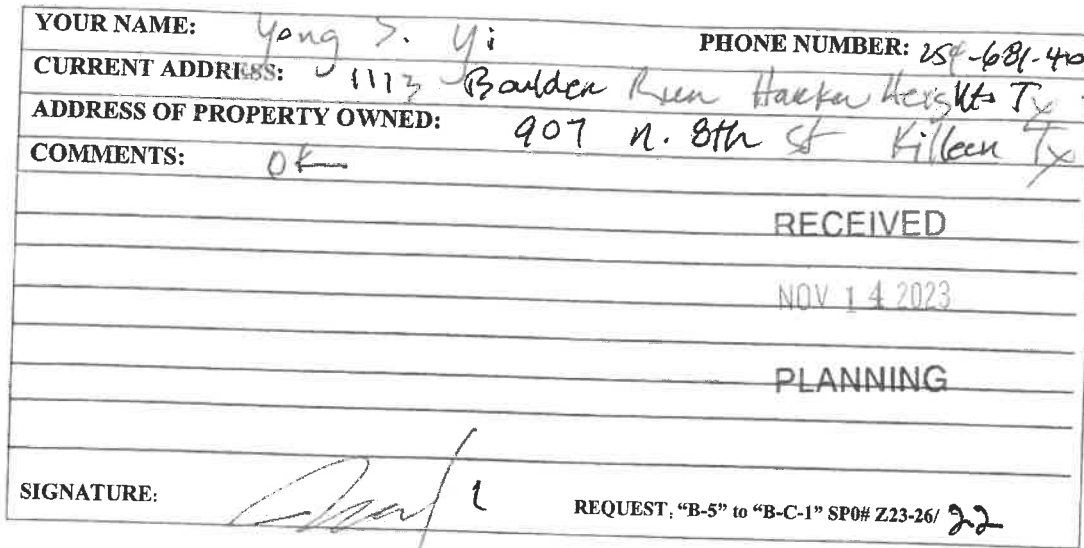 YOUR NAME: Yong S. Yi PHONE NUMBER: 254-681-40
CURRENT ADDRESS: 1113 Boulder Run Harker Heights Tx
ADDRESS OF PROPERTY OWNED: 907 N. 8th St Killeen Tx
COMMENTS: OK
RECEIVED
NOV 14 2023
PLANNING
SIGNATURE: REQUEST: "B-5" to "B-C-1" SPO# Z23-26/ 22